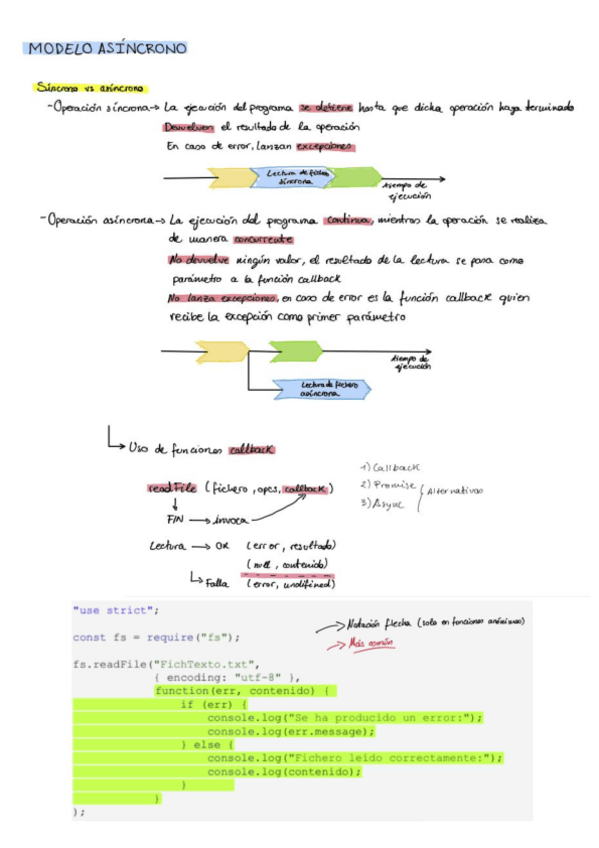 MODELO ASÍNCRONO
Síncrono vs asíncrono
-Operación síncrona→ La ejecución del programa se detiene hasta que dicha operación haya terminado
Devuelven el resultado de la operación
En caso de error, lanzan excepciones
Lectura de fichero
síncrona
tiempo de
ejecución
-Operación asíncrona→ La ejecución del programa continua, mientras la operación se realiza
de manera concurrente
No devuelve ningún valor, el resultado de la lectura se pasa como
parámetro a la función callback
No lanza excepciones, en caso de error es la función callback quien
recibe la excepción como primer parámetro
tiempo de
ejecución
Lectura de fichero
asíncrona
↳ Uso de funciones callback
1) Callback
2) Promise
3) Async
Alternativas
readFile (fichero, opcs, callback)
FIN → invoca
Lectura → OK (error, resultado)
(null, contenido)
↳ Falla (error, undifined)
"use strict";
→ Notación flecha (solo en funciones anónimas)
const fs = require("fs");
→ Más común
fs.readFile("FichTexto.txt",
{ encoding: "utf-8" },
function(err, contenido) {
if (err) {
console.log("Se ha producido un error:");
console.log(err.message);
} else {
console.log("Fichero leído correctamente:");
console.log(contenido);
}
}
);